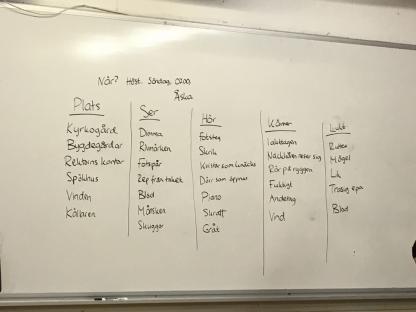 När? Höst. Söndag, 02.00,
Åska.
Plats
Kyrkogård
Bygdegårdar
Rektorns kontor
Spökhus
Vinden
Källaren
Ser
Dimma
Rivmärken
Fotspår
Rep från taket
Blod
Månsken
Skuggor
Hör
Fotsteg
Skrik
Kvistar som knäcks
Dörr som öppnas
Piano
Skratt
Gråt
Känner
Iakttagen
Nackhåren reser sig
Rör på ryggen
Fuktigt
Andetag
Vind
Lukt
Rutten
Mögel
Lik
Blod